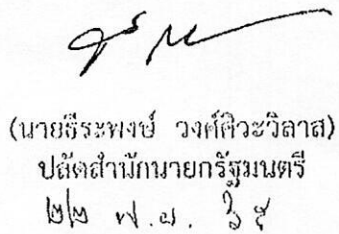 (นายธีระพงษ์ วงศ์ศิวะวิลาส)
ปลัดสำนักนายกรัฐมนตรี
๒๒ พ.ย. ๖๔